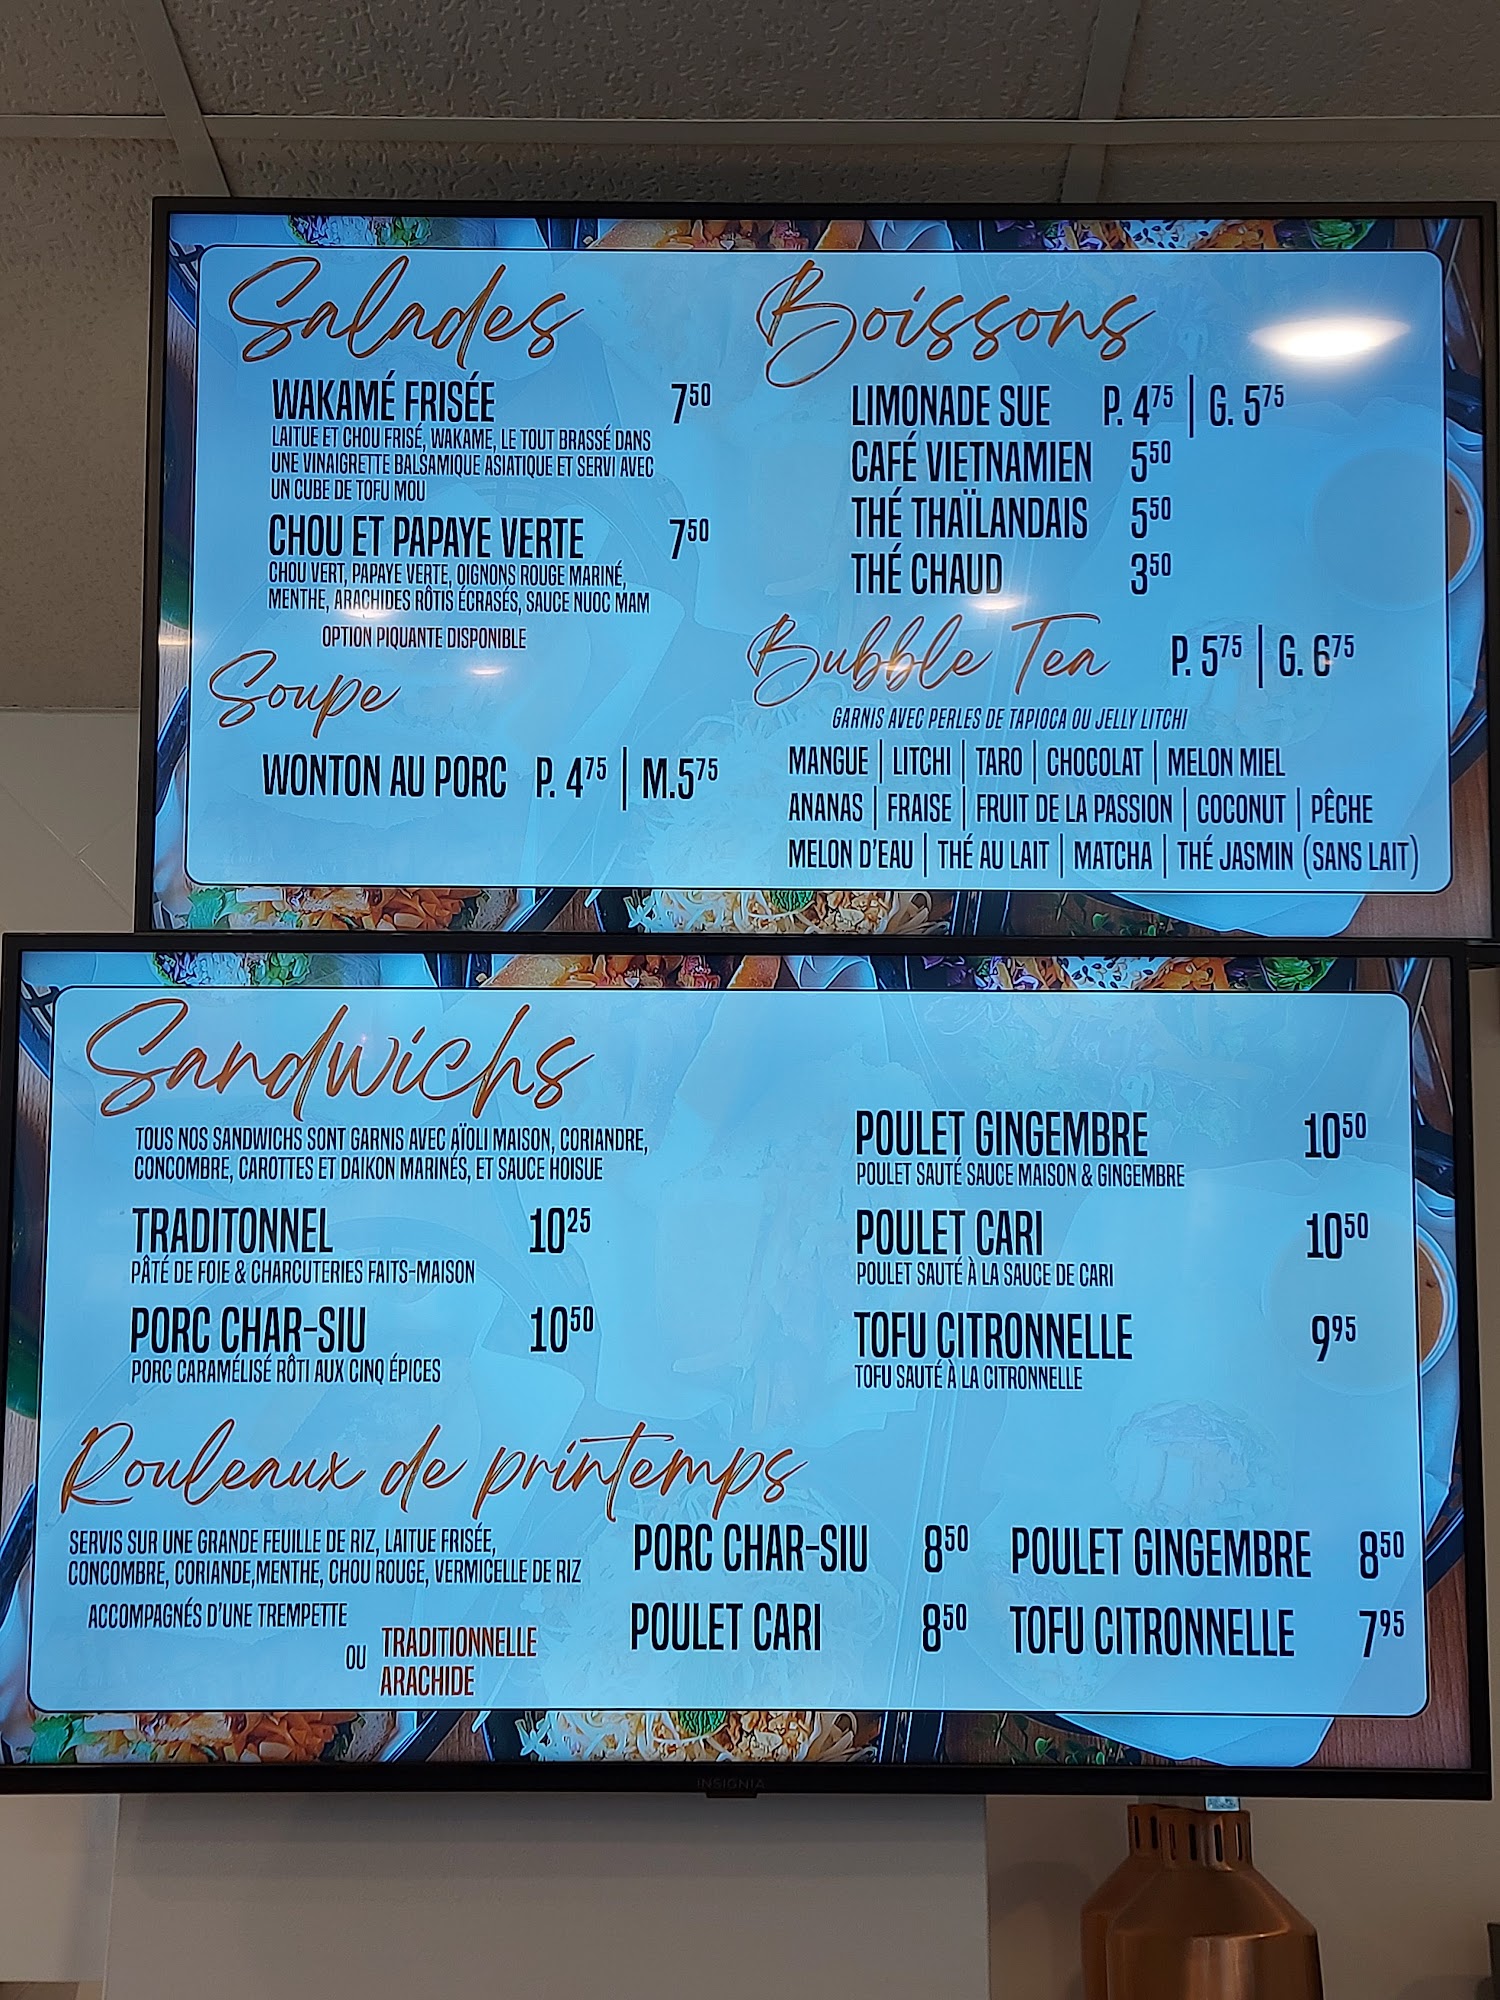 Salades
WAKAMÉ FRISÉE 7⁵⁰
LAITUE ET CHOU FRISÉ, WAKAME, LE TOUT BRASSÉ DANS
UNE VINAIGRETTE BALSAMIQUE ASIATIQUE ET SERVI AVEC
UN CUBE DE TOFU MOU
CHOU ET PAPAYE VERTE 7⁵⁰
CHOU VERT, PAPAYE VERTE, OIGNONS ROUGE MARINÉ,
MENTHE, ARACHIDES RÔTIS ÉCRASÉS, SAUCE NUOC MAM
OPTION PIQUANTE DISPONIBLE
Soupe
WONTON AU PORC P. 4⁷⁵ | M.5⁷⁵
Boissons
LIMONADE SUE P. 4⁷⁵ | G. 5⁷⁵
CAFÉ VIETNAMIEN 5⁵⁰
THÉ THAÏLANDAIS 5⁵⁰
THÉ CHAUD 3⁵⁰
Bubble Tea P. 5⁷⁵ | G. 6⁷⁵
GARNIS AVEC PERLES DE TAPIOCA OU JELLY LITCHI
MANGUE | LITCHI | TARO | CHOCOLAT | MELON MIEL
ANANAS | FRAISE | FRUIT DE LA PASSION | COCONUT | PÊCHE
MELON D'EAU | THÉ AU LAIT | MATCHA | THÉ JASMIN (SANS LAIT)
Sandwichs
TOUS NOS SANDWICHS SONT GARNIS AVEC AÏOLI MAISON, CORIANDRE,
CONCOMBRE, CAROTTES ET DAIKON MARINÉS, ET SAUCE HOISUE
TRADITONNEL 10²⁵
PÂTÉ DE FOIE & CHARCUTERIES FAITS-MAISON
PORC CHAR-SIU 10⁵⁰
PORC CARAMÉLISÉ RÔTI AUX CINQ ÉPICES
POULET GINGEMBRE 10⁵⁰
POULET SAUTÉ SAUCE MAISON & GINGEMBRE
POULET CARI 10⁵⁰
POULET SAUTÉ À LA SAUCE DE CARI
TOFU CITRONNELLE 9⁹⁵
TOFU SAUTÉ À LA CITRONNELLE
Rouleaux de printemps
SERVIS SUR UNE GRANDE FEUILLE DE RIZ, LAITUE FRISÉE,
CONCOMBRE, CORIANDE,MENTHE, CHOU ROUGE, VERMICELLE DE RIZ
ACCOMPAGNÉS D'UNE TREMPETTE
OU TRADITIONNELLE
ARACHIDE
PORC CHAR-SIU 8⁵⁰ POULET GINGEMBRE 8⁵⁰
POULET CARI 8⁵⁰ TOFU CITRONNELLE 7⁹⁵
INSIGNIA